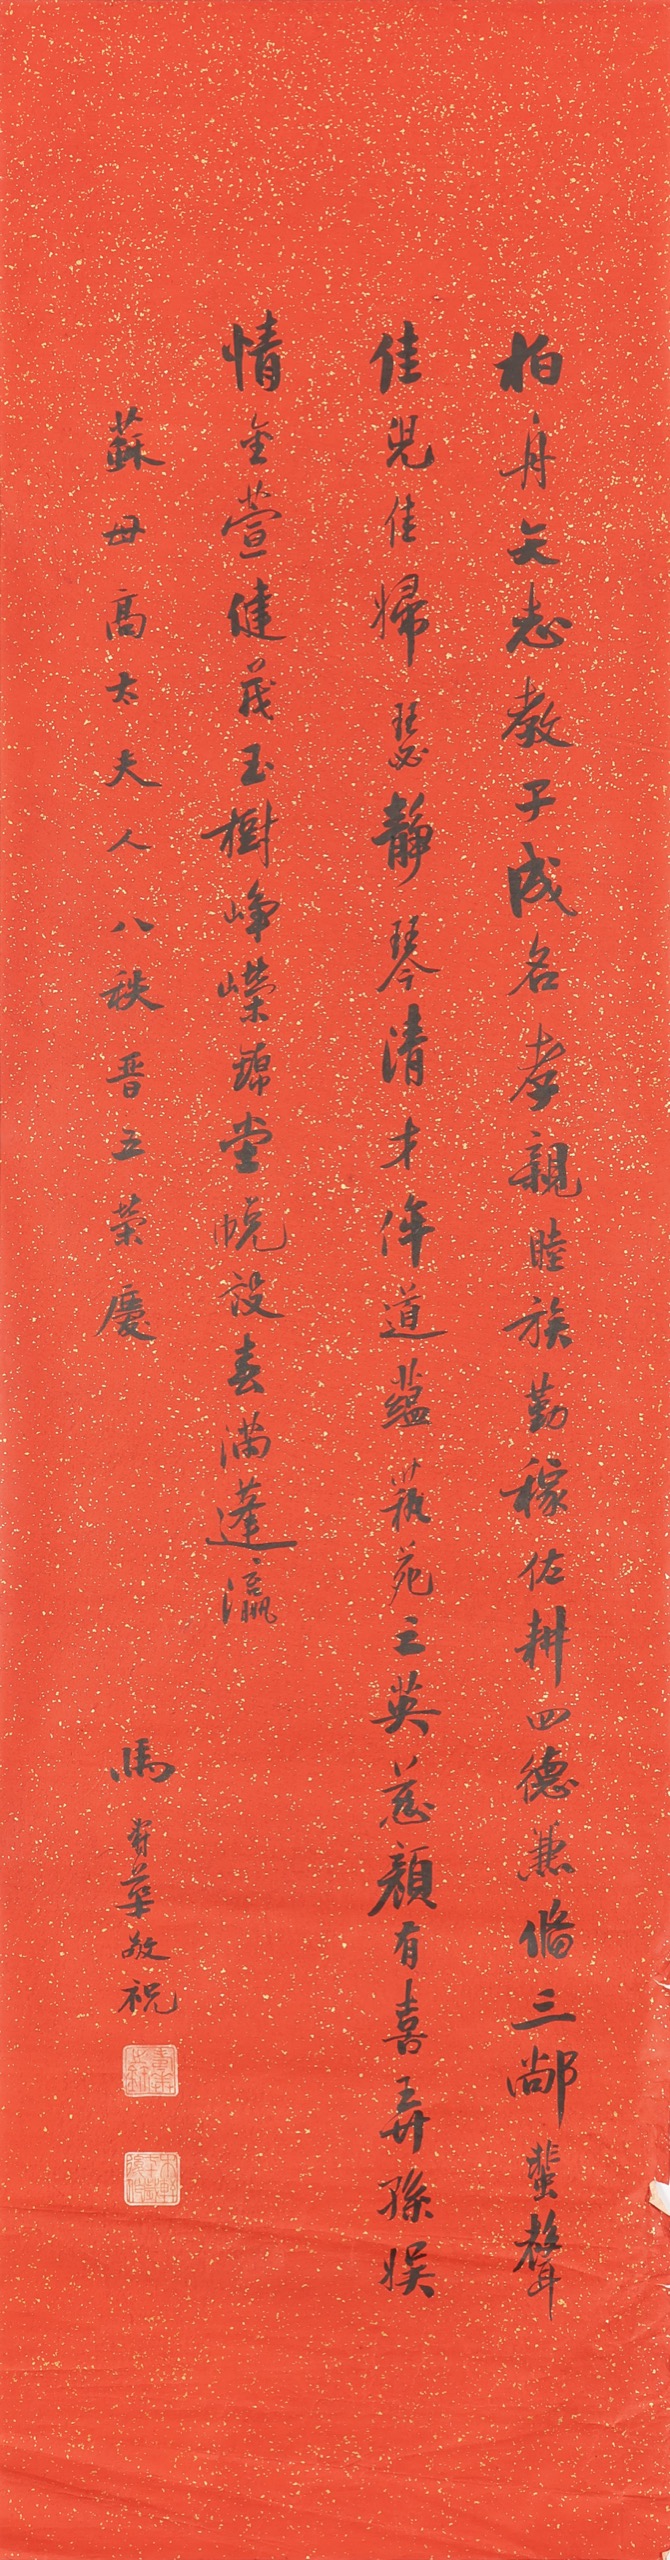 柏舟矢志教子成名孝親睦族勤稼佐耕四德兼脩三鄰蜚聲
佳兒佳婦瑟靜琴清才侔道蘊藝苑之英慈顏有喜弄孫娛
情金萱健茂玉樹崢嶸錦堂帨設春滿蓬瀛
蘇母高太夫人八秩晉五榮慶
馬壽華敬祝